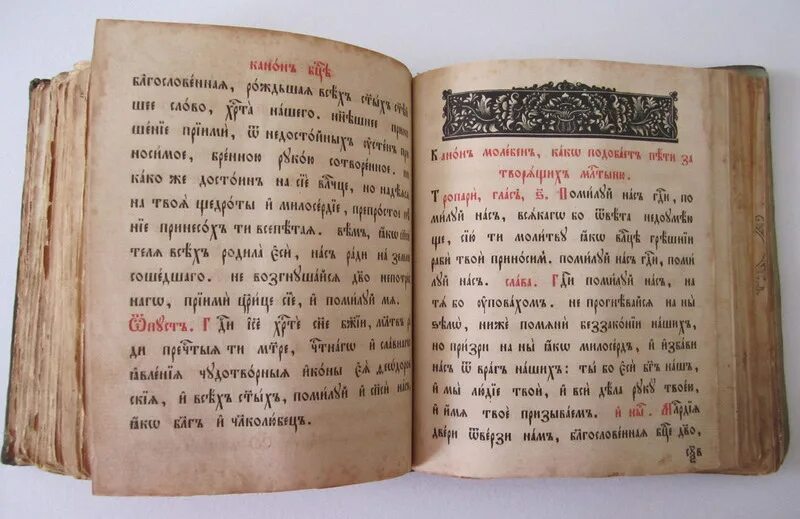 Кано́нъ бц҃ѣ
бл҃гослове́нная, ро́ждьшая всѣ́хъ ст҃ы́хъ ст҃ѣ́и
шее сло́во, хрⷭ҇та̀ на́шего. ны́нѣшнее прино
ше́нїе прїимѝ, ѿ недосто́йныхъ ᲂу҆сте́нъ при
носи́мое, бре́нною рꙋко́ю сотворе́нное. не
ка́ко же досто́ин на сїѐ влⷣчце, но надѣ́ѧся
на твоѧ̀ щедро́ты и҆ милосе́рдїе, препросто́е
нїе принесо́хъ ти всепѣ́таѧ. вѣ́мъ, ꙗ҆́кѡ
телѧ всѣ́хъ родила̀ є҆сѝ, на́съ ра́ди на зе́млю
соше́дшаго. не возгнꙋша́йсѧ дв҃о непотре́
наго, прїимѝ цр҃и́це сїѐ, и҆ поми́лꙋй мѧ̀.
Ѿпꙋ́стъ. Гдⷭ҇и і҆с҃е хрⷭ҇тѐ сн҃е бж҃їй, мл҃твъ ра́
ди пречⷭ҇тыѧ ти мт҃ре, чⷭ҇тна́гѡ и҆ сла́внаго
ꙗ҆вле́нїѧ чꙋдотво́рныѧ и҆ко́ны є҆ѧ̀ ѳео́доров
скїѧ, и҆ всѣ́хъ ст҃ы́хъ, поми́лꙋй и҆ сп҃сѝ на́съ
ꙗ҆́кѡ бл҃гъ и҆ чл҃колю́бецъ.
Кано́нъ моле́бенъ, ка́кѡ подоба́етъ пѣ́ти за
творѧ́щихъ мл҃тыню.
Тропарѝ, гла́съ, ѕ҃. Поми́лꙋй на́съ гдⷭ҇и, по
ми́лꙋй на́съ, всѧ́кагѡ бо ѿвѣ́та недоꙋмѣ́ю
ще, сїю́ ти моли́твꙋ ꙗ҆́кѡ влⷣцѣ грѣ́шнїи
рабѝ твоѝ прино́симъ. поми́лꙋй на́съ гдⷭ҇и, поми
лꙋй на́съ. сла́ва. Гдⷭ҇и поми́лꙋй на́съ, на
тѧ́ бо ᲂу҆пова́хомъ. не прогнѣ́вайсѧ на ны̀
ѕѣлѡ̀, нижѐ помѧнѝ беззако́нїи на́шихъ,
но при́зри на ны̀ ꙗ҆́кѡ милосе́рдъ, и҆ и҆зба́ви
на́съ ѿ вра́гъ на́шихъ: ты́ бо є҆сѝ бг҃ъ на́шъ,
и҆ мы̀ лю́дїе твоѝ, и҆ всѝ дѣ́ла рꙋкꙋ̀ твоє́ю,
и҆ и҆́мѧ твоѐ призыва́емъ. и҆ нн҃ѣ. Млⷭ҇рдїѧ
две́ри ѿве́рзи на́мъ, бл҃гослове́нная бц҃е дв҃о,